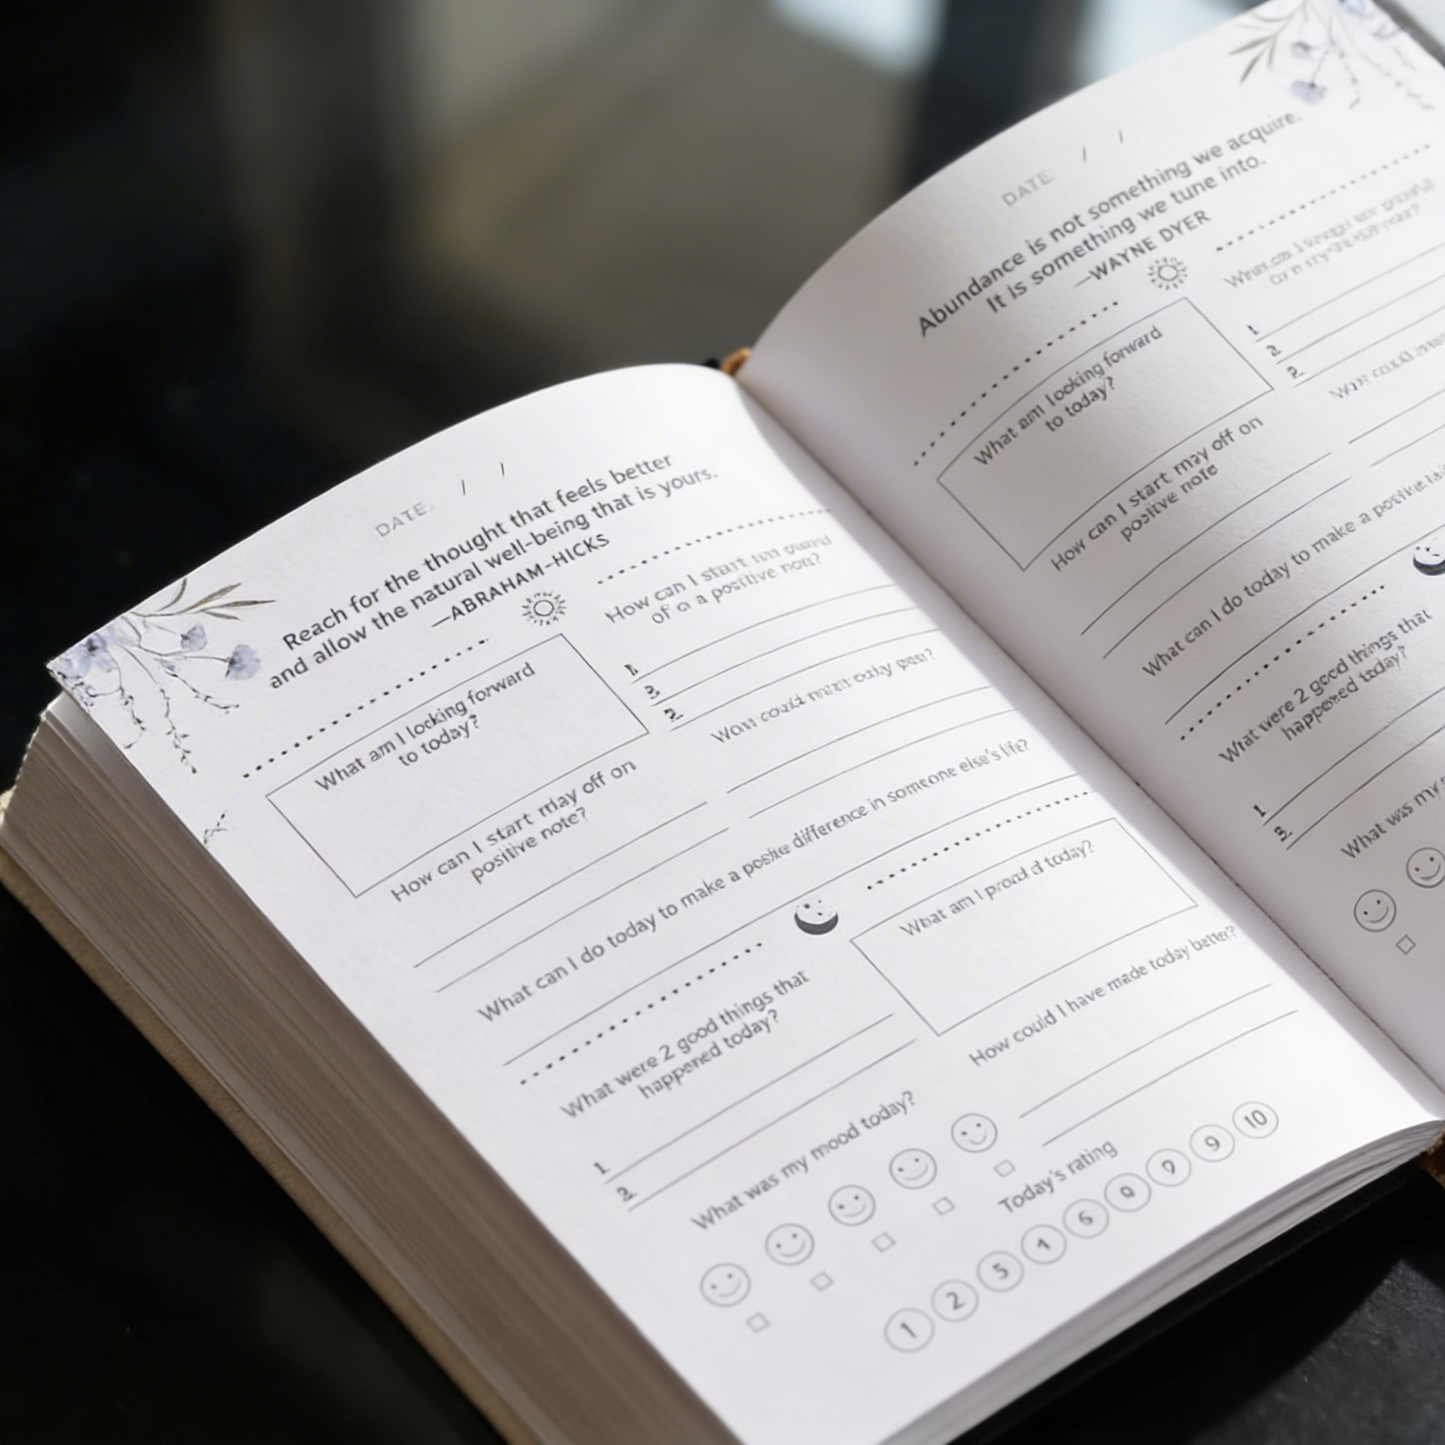 DATE: / /
Reach for the thought that feels better
and allow the natural well-being that is yours.
—ABRAHAM-HICKS
What am I locking forward
to today?
How can I start
of a a positive
1.
3.
2.
How can I start may off on
positive note?
What can I do today to make a difference in someone else's life?
What were 2 good things that
happened today?
1.
3.
What am I today?
How could I have made today better?
What was my mood today?
Today's rating
1 2 5 4 6 9 9 9 10
DATE: / /
Abundance is not something we acquire.
It is something we tune into.
—WAYNE DYER
What am I looking forward
to today?
1
2.
2.
How can I start may off on
positive note
What can I do today to make a
What were 2 good things that
happened today?
1
3.
What was my